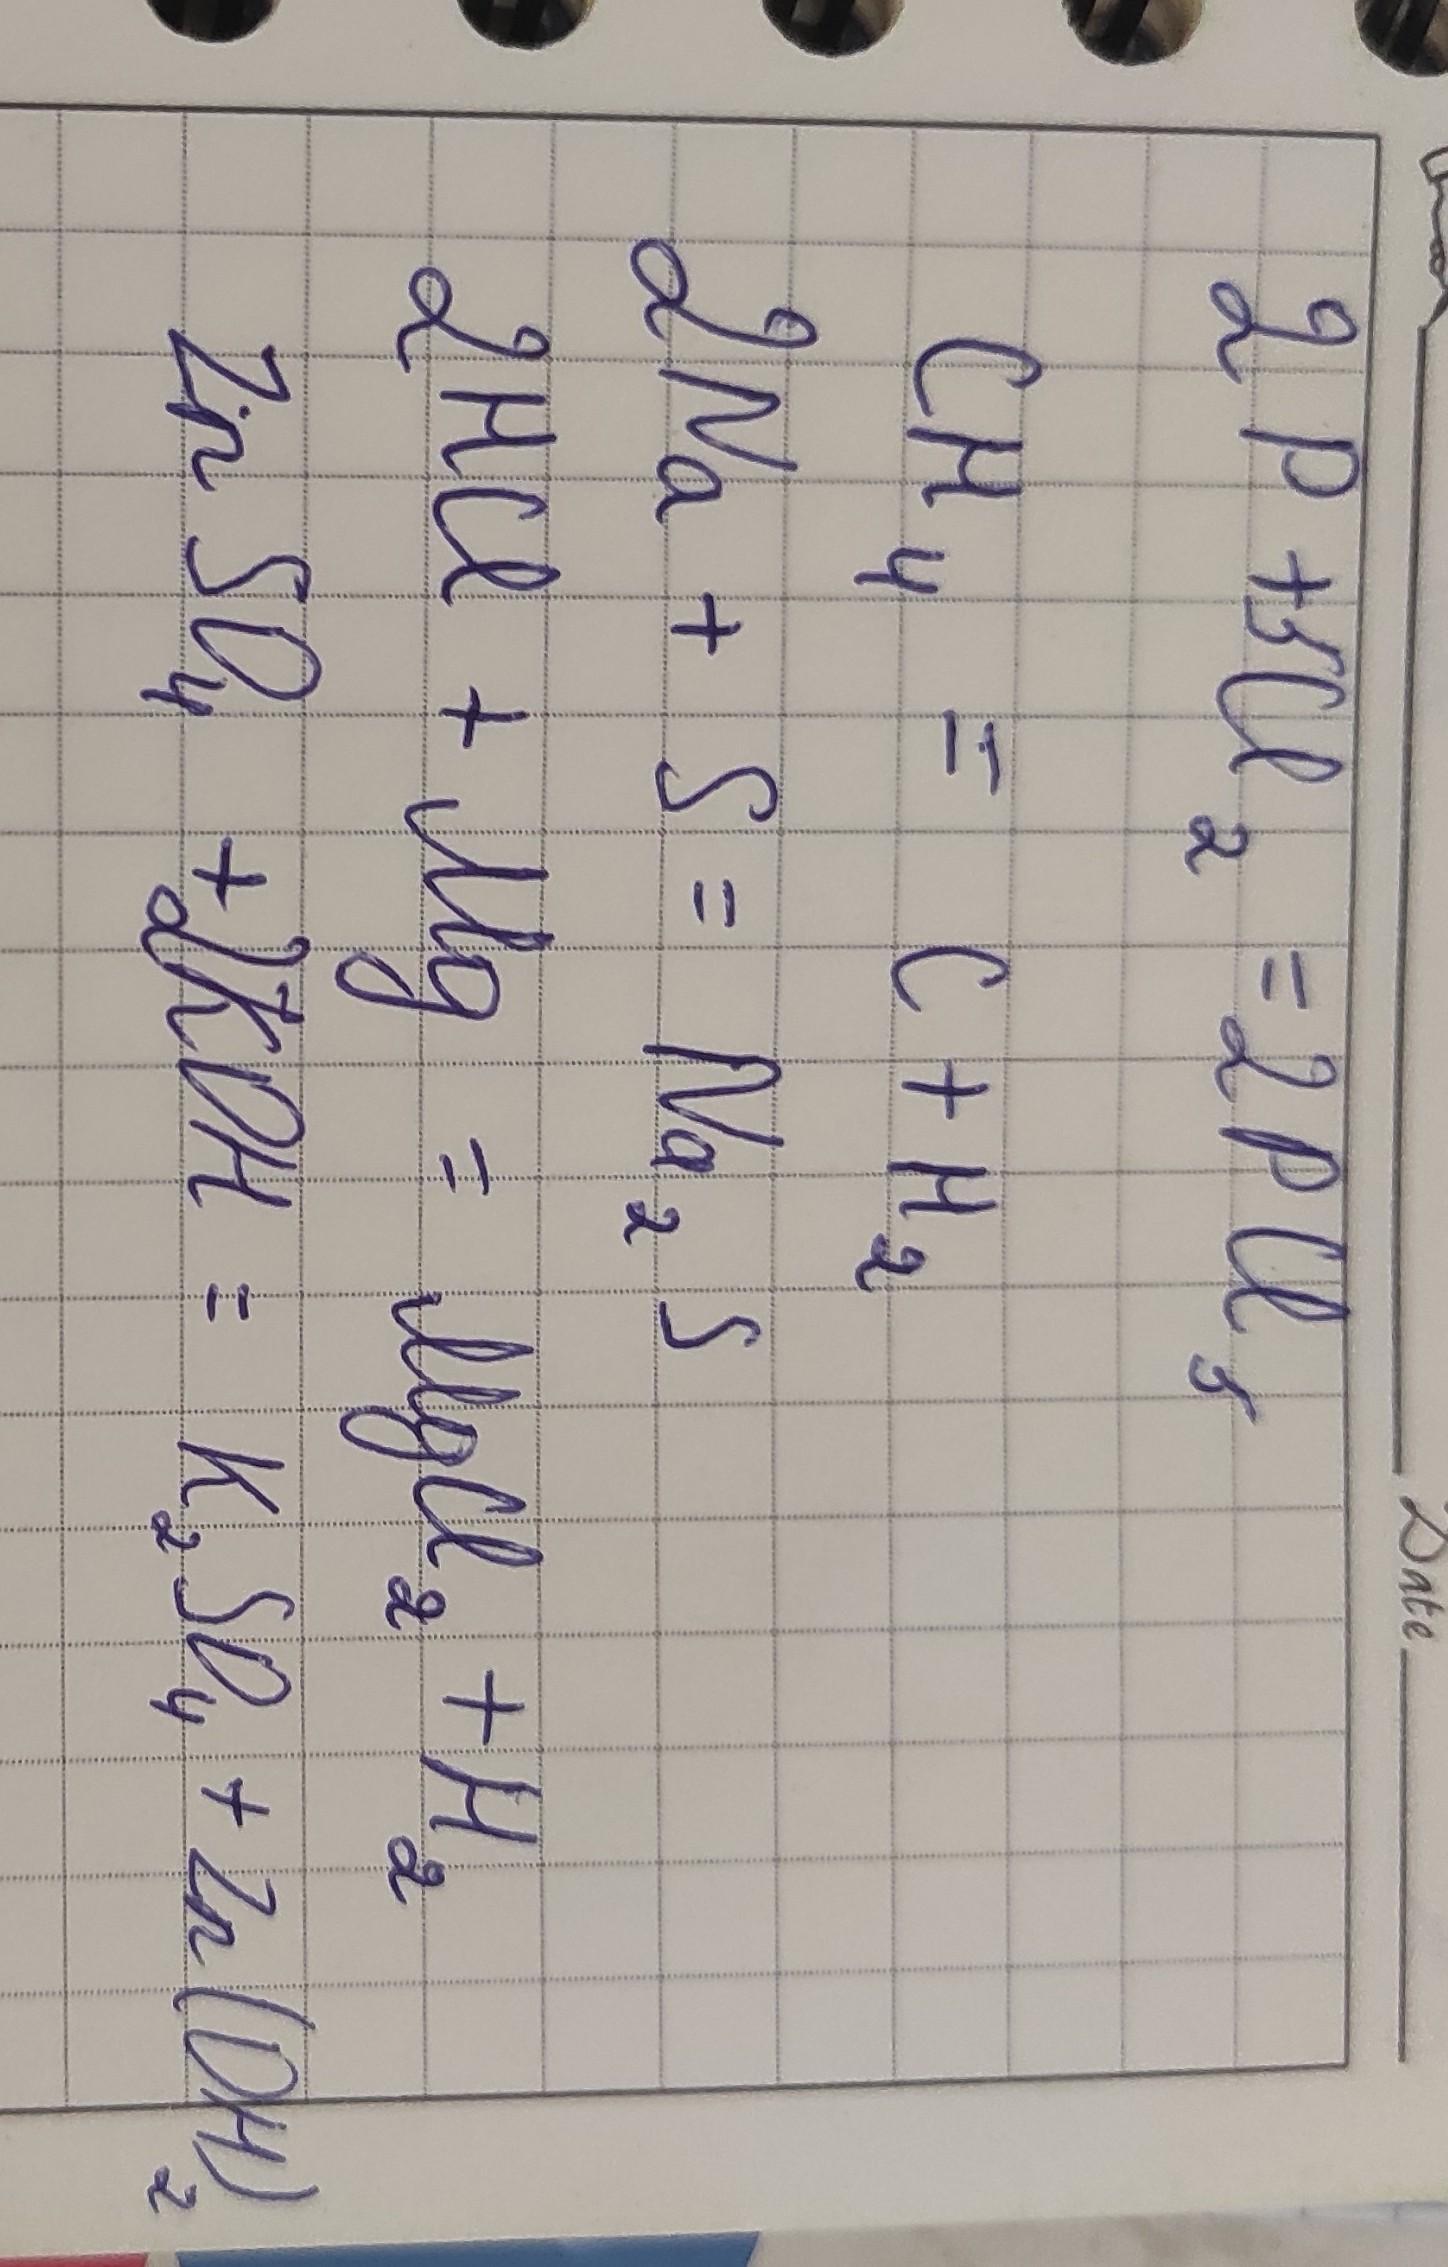 Date
2P + 5Cl₂ = 2PCl₅
CH₄ = C + H₂
2Na + S = Na₂S
2HCl + Mg = MgCl₂ + H₂
ZnSO₄ + 2KOH = K₂SO₄ + Zn(OH)₂